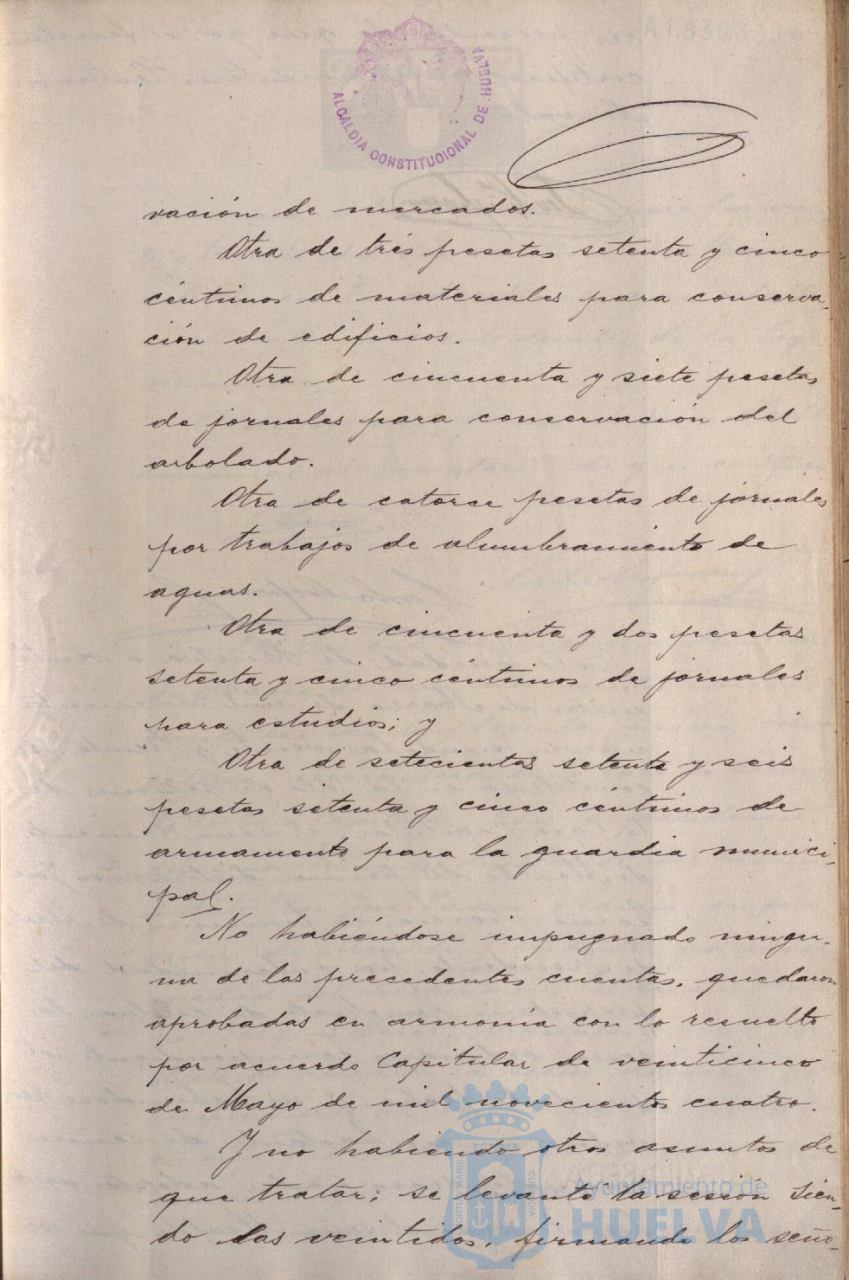 ALCALDIA CONSTITUCIONAL DE HUELVA
vación de mercados.
Otra de tres pesetas setenta y cinco
céntimos de materiales para conserva-
ción de edificios.
Otra de cincuenta y siete pesetas
de jornales para conservación del
arbolado.
Otra de catorce pesetas de jornales
por trabajos de alumbramiento de
aguas.
Otra de cincuenta y dos pesetas
setenta y cinco céntimos de jornales
para estudios; y
Otra de setecientas setenta y seis
pesetas setenta y cinco céntimos de
armamento para la guardia munici-
pal.
No habiéndose impugnado ningu-
na de las precedentes cuentas, quedaron
aprobadas en armonía con lo resuelto
por acuerdo Capitular de veinticinco
de Mayo de mil novecientos cuatro.
Y no habiendo otros asuntos de
que tratar; se levantó la sesión sien-
do las veintidos, firmando los seño-
Ayuntamiento de
HUELVA